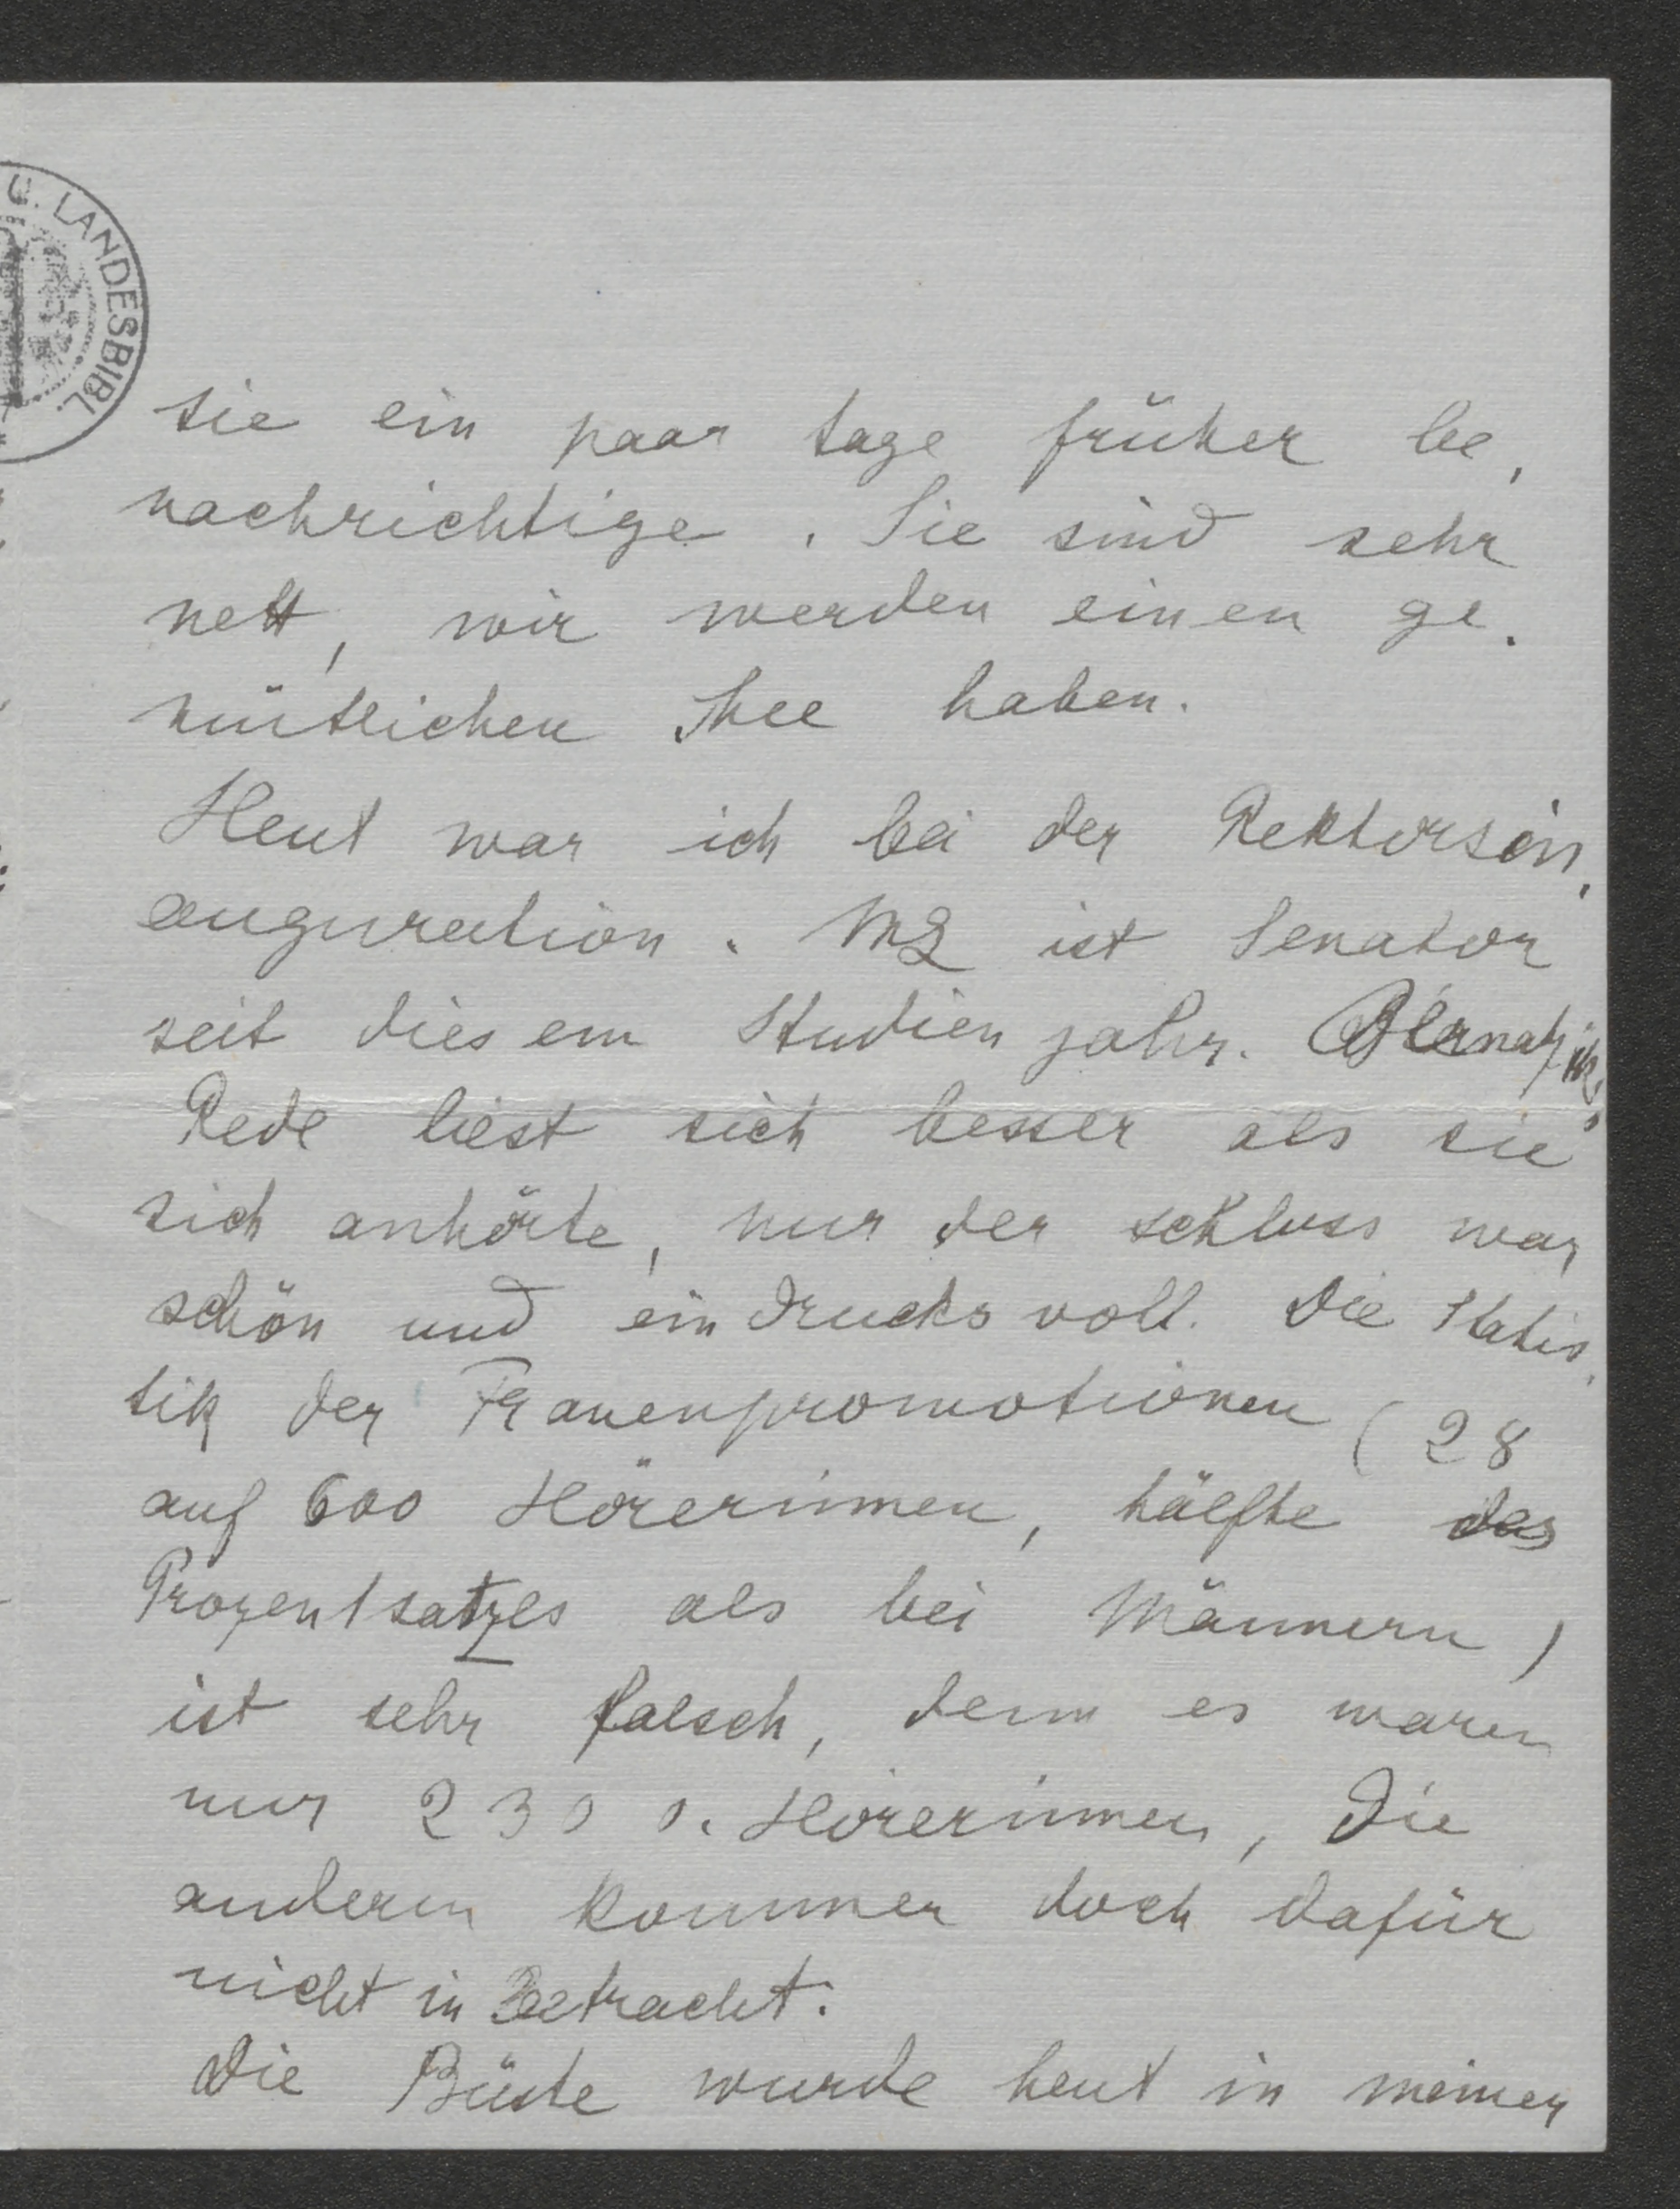 U. LANDESBIBL.
sie ein paar tage früher be,
nachrichtige. Sie sind sehr
nett, wir werden einen ge.
mütlichen Thee haben.
Heut war ich bei der Rektorsin,
auguration. ML ist Senator
seit diesem Studienjahr. Bernatziks
Rede liest sich besser als sie
sich anhörte, nur der schluss war
schön und eindrucksvoll. Die Statis,
tik der Frauenpromotionen (28
auf 600 Hörerinnen, hälfte des
Prozentsatzes als bei Männern)
ist sehr falsch, denn es waren
nur 230 o. Hörerinnen, die
anderen kommen doch dafür
nicht in Betracht.
Die Büste wurde heut in meiner